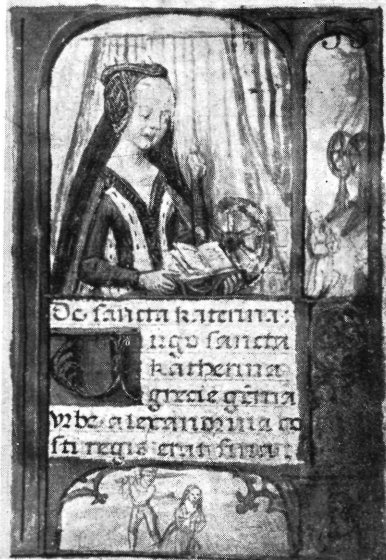 De sancta katerina:
Virgo sancta
katherina
grecie gēma
vrbe alexandrina co
sti regis erat filia.